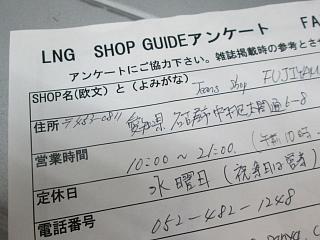 LNG SHOP GUIDEアンケート FA
アンケートにご協力下さい。雑誌掲載時の参考とさ
SHOP名(欧文)と(よみがな) Jeans Shop FUJIYAMA
住所 〒453-0811 愛知県名古屋市中村区太閤通6-8
営業時間 10:00 ～ 21:00 (午前10時
定休日 水曜日(祝祭日は営業)
電話番号 052-482-1248